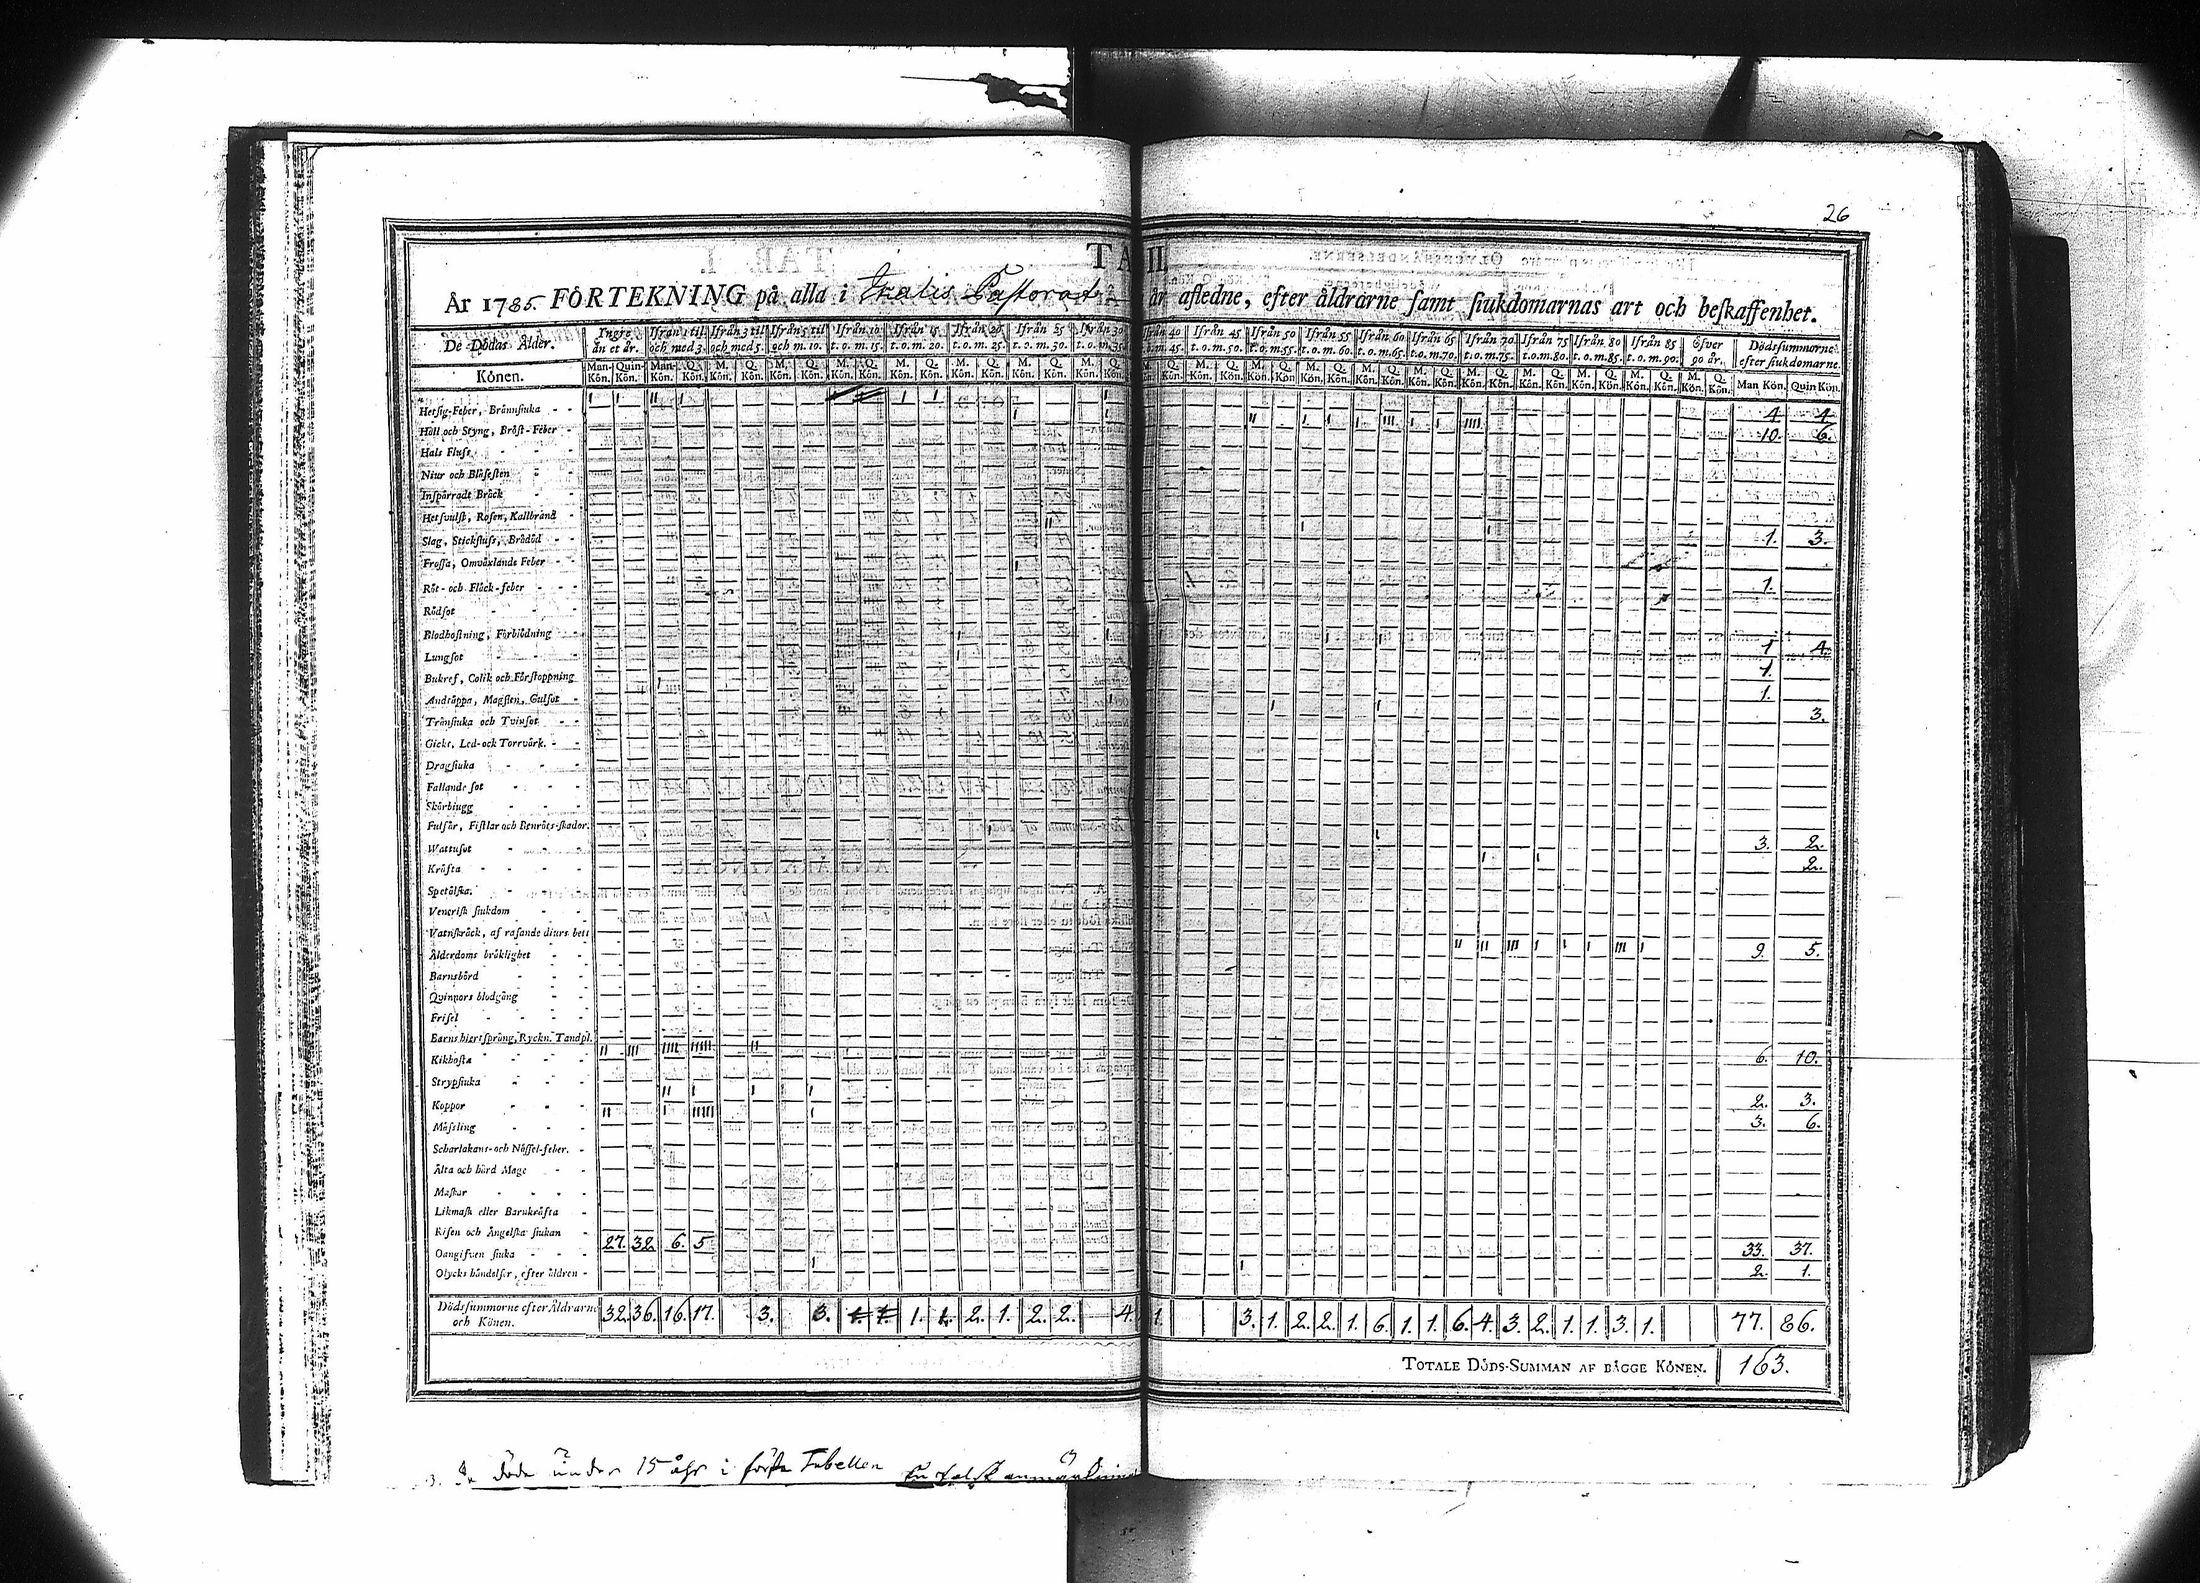 26
TAB. II.
År 1785. FÖRTEKNING på alla i Ikalis Pastorat år afledne, efter åldrarne samt siukdomarnas art och beskaffenhet.
De Dödas Ålder. Ingre än et år. Ifrån 1 til och med 3. Ifrån 3 til och med 5. Ifrån 5 til och m. 10. Ifrån 10 t. o. m. 15. Ifrån 15 t. o. m. 20. Ifrån 20 t. o. m. 25. Ifrån 25 t. o. m. 30. Ifrån 30 t. o. m. 35. Ifrån 40 t. o. m. 45. Ifrån 45 t. o. m. 50. Ifrån 50 t. o. m. 55. Ifrån 55 t. o. m. 60. Ifrån 60 t. o. m. 65. Ifrån 65 t. o. m. 70. Ifrån 70 t. o. m. 75. Ifrån 75 t. o. m. 80. Ifrån 80 t. o. m. 85. Ifrån 85 t. o. m. 90. Öfver 90 år. Dödssummorne efter siukdomarne.
Könen. Man Kön. Quin Kön.
Hetsig-Feber, Brännsiuka 4 4
Håll och Styng, Bröst-Feber 10. 6.
Hals Fluss
Niur och Blåsesten
Inspärradt Bråck
Hetsvulst, Rosen, Kallbrand
Slag, Stickfluss, Brådöd 1. 3.
Frossa, Omväxlande Feber
Röt- och Fläck-feber 1.
Rödsot
Blodhostning, Förblödning
Lungsot 1 4.
Bukref, Colik och Förstoppning 1.
Andtäppa, Magsten, Gulsot 1.
Trånsiuka och Tvinsot 3.
Gickt, Led- och Torrvärk.
Dragsiuka
Fallande sot
Skörbiugg
Fulsår, Fistlar och Benröts-skador.
Wattusot 3. 2.
Kräfta 2.
Spetälska.
Venerisk siukdom
Vatnskräck, af rasande diurs bett
Ålderdoms bräklighet 9. 5.
Barnsbörd
Quinnors blodgång
Frisel
Barns hiertsprång, Ryckn. Tandpl.
Kikhosta 6. 10.
Strypsiuka
Koppor 2. 3.
Mässling 3. 6.
Scharlakans- och Nässel-feber.
Älta och hård Mage
Maskar
Likmask eller Barnkräfta
Risen och Ängelska siukan
Oangifven siuka 27. 32 6. 5 33. 37.
Olycks händelser, efter åldren 2 1.
Dödssummorne efter Åldrarne och Könen. 32. 36. 16. 17. 3. 3. 1. 1. 1. 1. 2. 1. 2. 2. 4. 1. 3. 1. 2. 2. 1. 6. 1. 1. 6. 4. 3. 2. 1. 1. 3. 1. 77. 86.
TOTALE DÖDS-SUMMAN AF BÄGGE KÖNEN. 163.
döda under 15 åhr i förste Tabellen